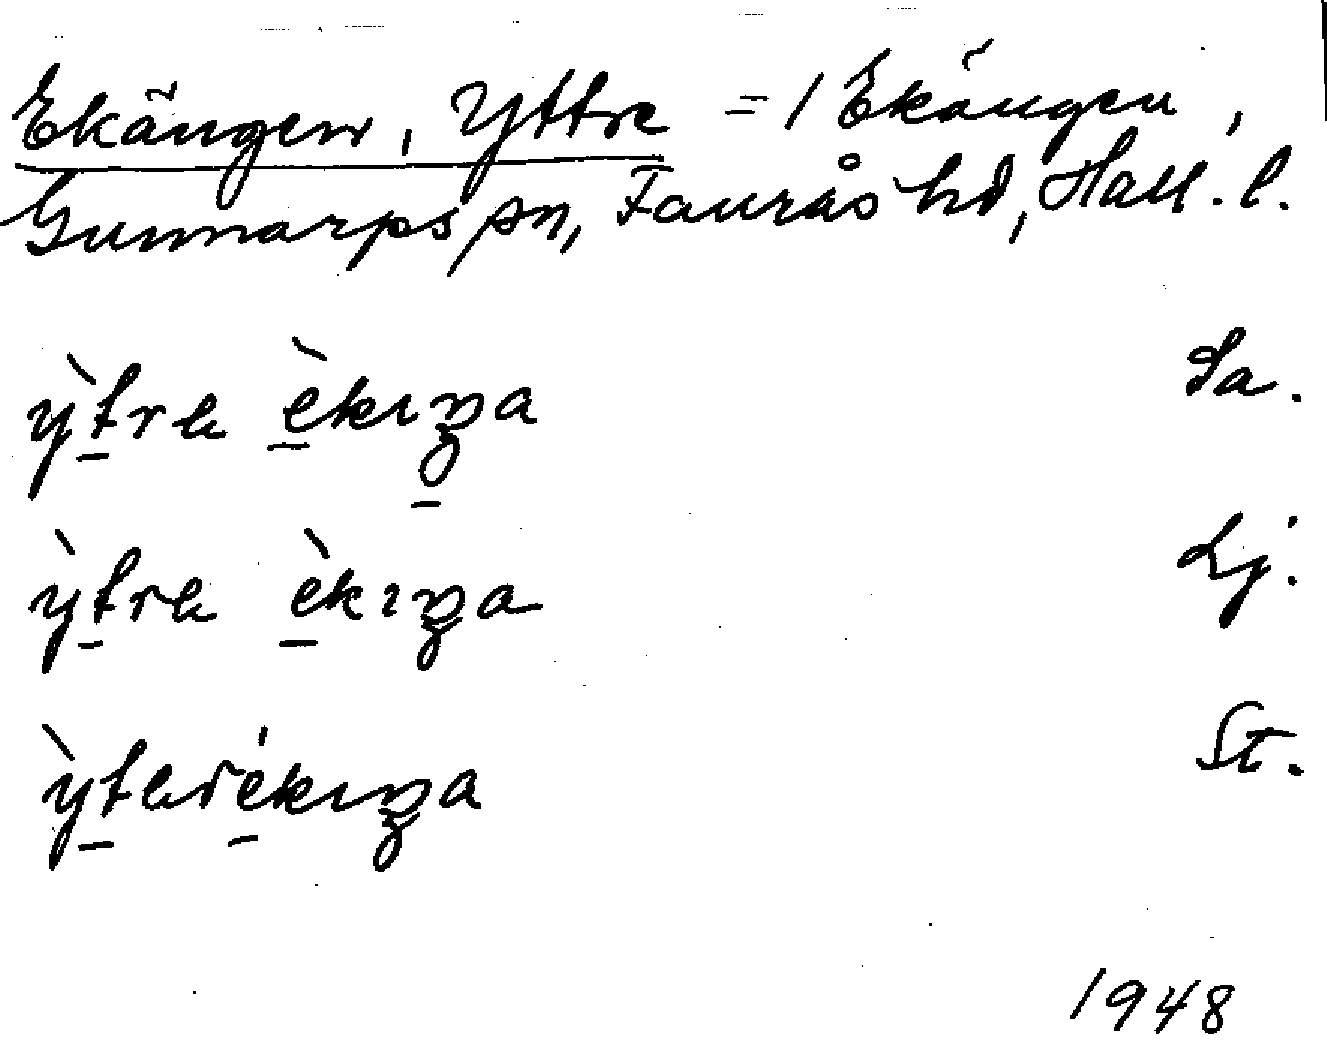 Ekängen, Yttre = 1 Ekängen,
Gunnarps sn, Faurås hd, Hall. l.
ỳtre èkıŋa Sa.
ỳtre èkıŋa Lj.
ỳterékıŋa St.
1948